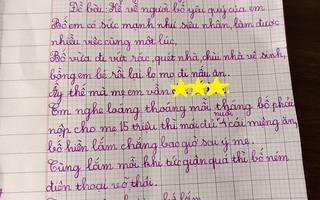 Đề bài: Kể về người bố yêu quý của em
Bố em có sức mạnh như siêu nhân, làm được
nhiều việc cùng một lúc,
Bố vừa đi vứt rác, quét nhà, chùi nhà vệ sinh,
bồng em bé rồi lại lo mo đi nấu ăn.
Ấy thế mà mẹ em vẫn
Em nghe loáng thoáng mỗi tháng bố phải
nộp cho mẹ 15 triệu thì mới đủ nuôi 4 cái miệng ăn,
bố hiền lắm chẳng bao giờ sai ý mẹ.
Cùng lắm mỗi khi tức giận quá thì bố ném
điện thoại vỡ thôi.